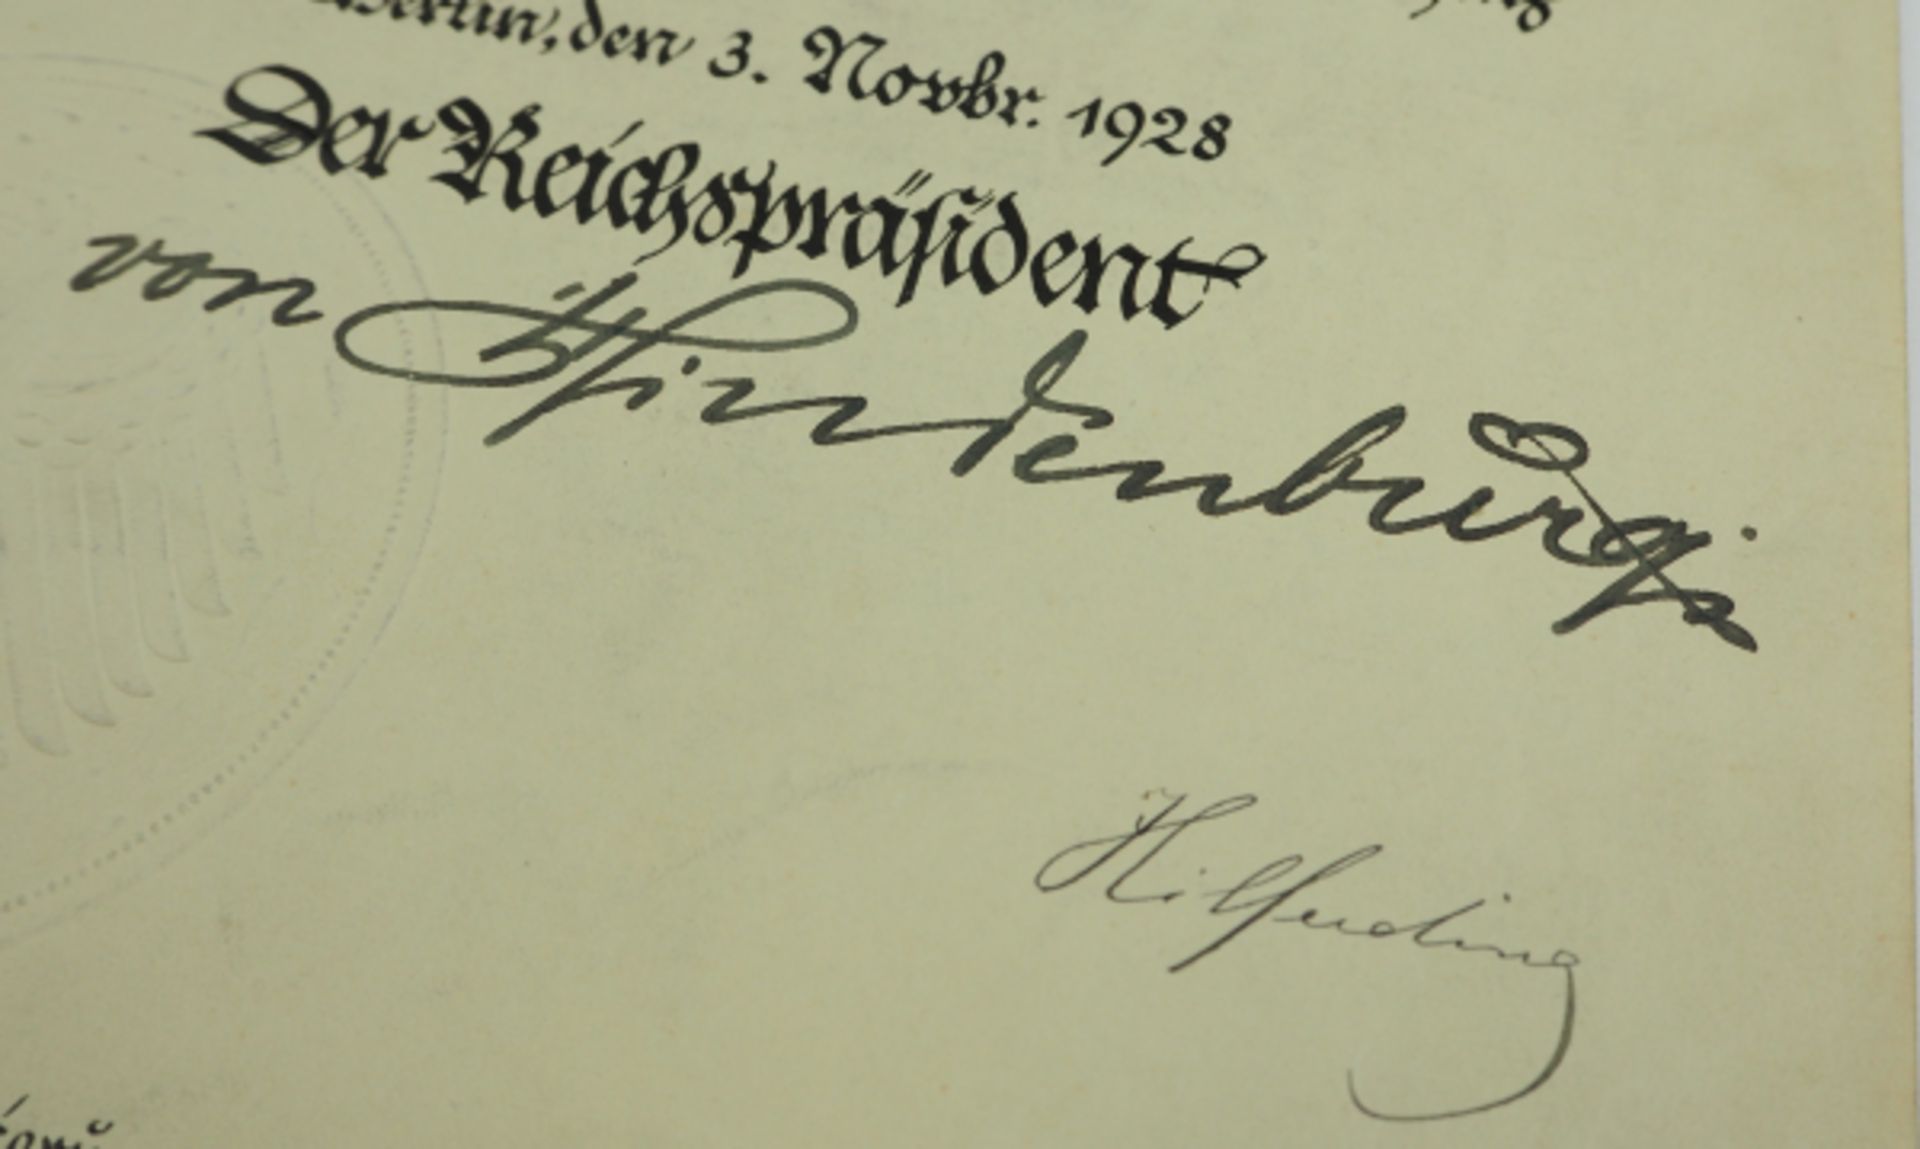 Berlin, den 3. Novbr. 1928
Der Reichspräsident
von Hindenburg
Hilferding